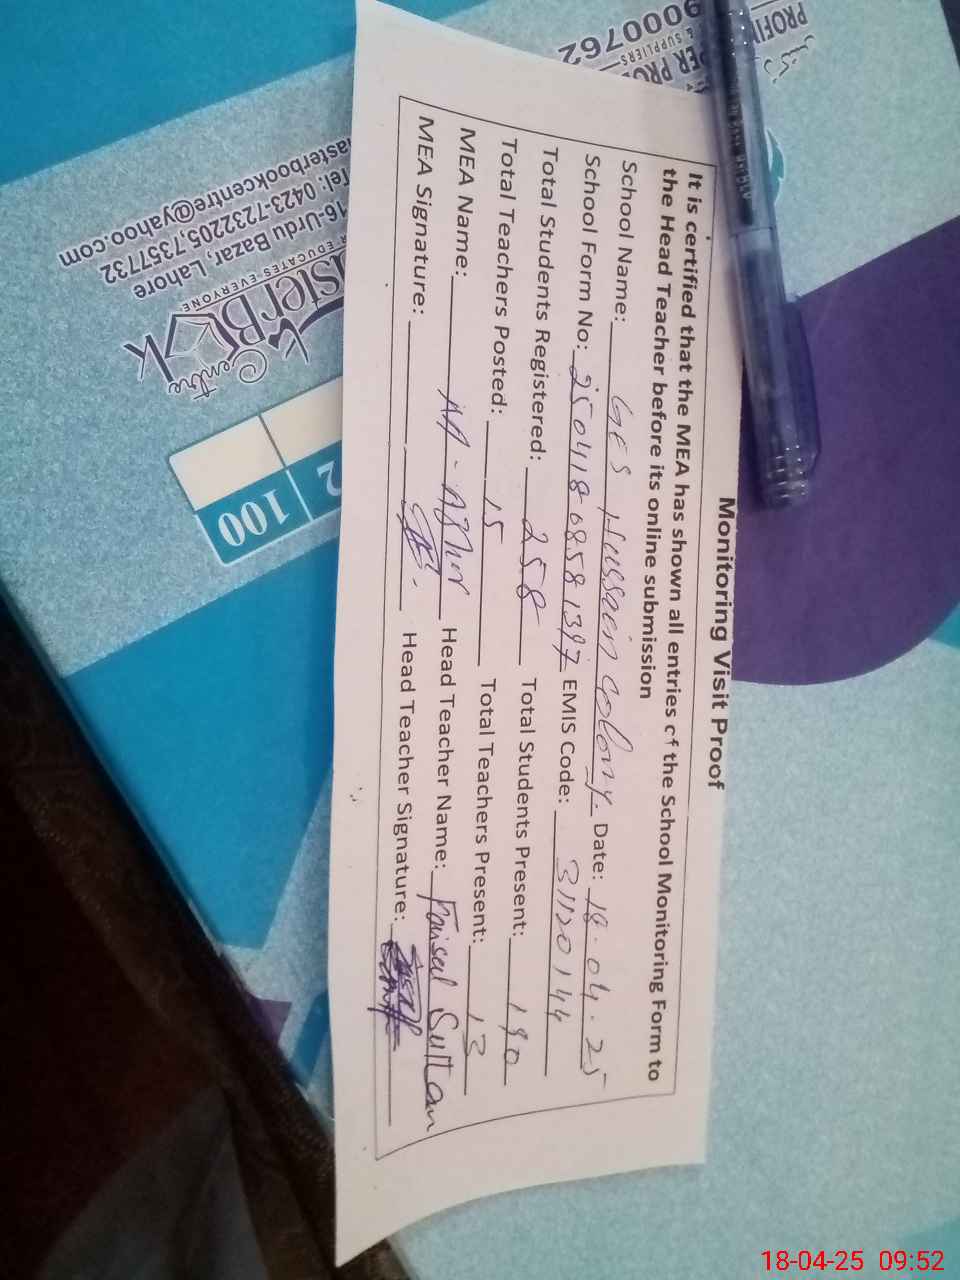 Monitoring Visit Proof
It is certified that the MEA has shown all entries of the School Monitoring Form to
the Head Teacher before its online submission
School Name: GES Hussain Colony Date: 18.04.25
School Form No: 250418-0858 1397 EMIS Code: 31120144
Total Students Registered: 258 Total Students Present: 190
Total Teachers Posted: 15 Total Teachers Present: 13
MEA Name: Head Teacher Name: Faisal Sultan
MEA Signature: Head Teacher Signature:
Centre
EDUCATES-EVERYONE
16-Urdu Bazar, Lahore
Tel: 0423-7232205,7357732
asterbookcentre@yahoo.com
100
2
9000762
& SUPPLIERS
PER PRO
PROFI
18-04-25 09:52